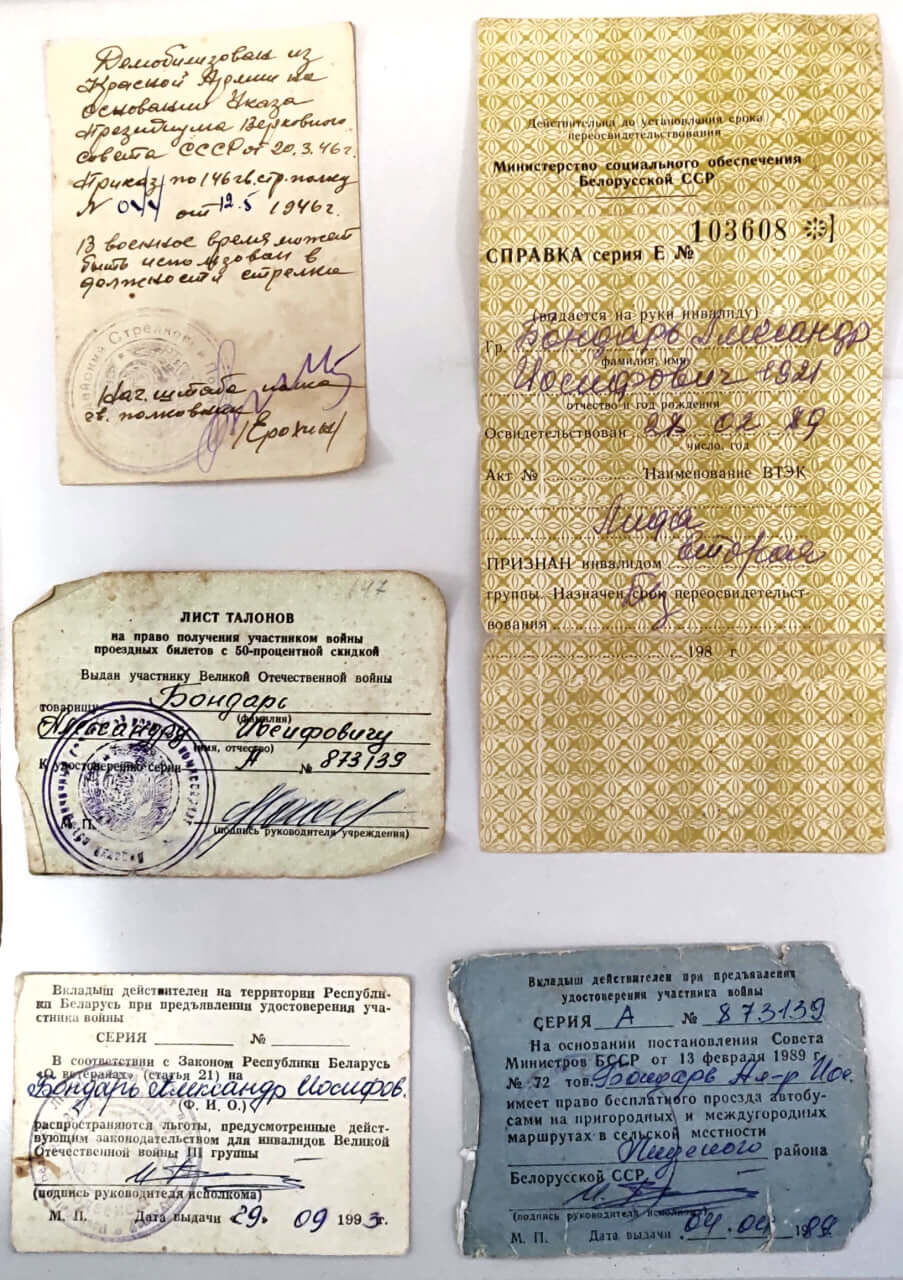 Демобилизован из
Красной Армии на
основании Указа
Президиума Верховного
совета СССР от 20.3.46г.
Приказ по 146гв.стр.полку
N 044 от 12.5 1946г.
В военное время может
быть использован в
должности стрелка
Стрелковый
Нач. штаба полка
гв. полковник
/Ерохин/
Действительна до установления срока
переосвидетельствования
Министерство социального обеспечения
Белорусской ССР
СПРАВКА серия Е № 103608
(выдается на руки инвалиду)
Гр. Бондарь Александр
фамилия, имя,
Иосифович 1921
отчество и год рождения
Освидетельствован 28 02 89
число, год
Акт № Наименование ВТЭК
Лида
ПРИЗНАН инвалидом второй
группы. Назначен срок переосвидетельст-
б/с
вования
198 г
147
ЛИСТ ТАЛОНОВ
на право получения участником войны
проездных билетов с 50-процентной скидкой
Выдан участнику Великой Отечественной войны
товарищу Бондарь
(фамилия)
Александру Иосифовичу
(имя, отчество)
К удостоверению серии А № 873139
М. П.
(подпись руководителя учреждения)
Вкладыш действителен на территории Республи-
ки Беларусь при предъявлении удостоверения уча-
стника войны
СЕРИЯ №
В соответствии с Законом Республики Беларусь
«О ветеранах» (статья 21) на
Бондарь Александр Иосифов.
(Ф. И. О.)
распространяются льготы, предусмотренные дейст-
вующим законодательством для инвалидов Великой
Отечественной войны III группы
(подпись руководителя исполкома)
М. П. Дата выдачи «29» 09 1993г.
Вкладыш действителен при предъявлении
удостоверения участника войны
СЕРИЯ А № 873139
На основании постановления Совета
Министров БССР от 13 февраля 1989 г.
№ 72 тов. Бондарь Ал-р Иос.
имеет право бесплатного проезда автобу-
сами на пригородных и междугородных
маршрутах в сельской местности
Лидского района
Белорусской ССР
(подпись руководителя исполкома)
М. П. Дата выдачи 04.04 1989